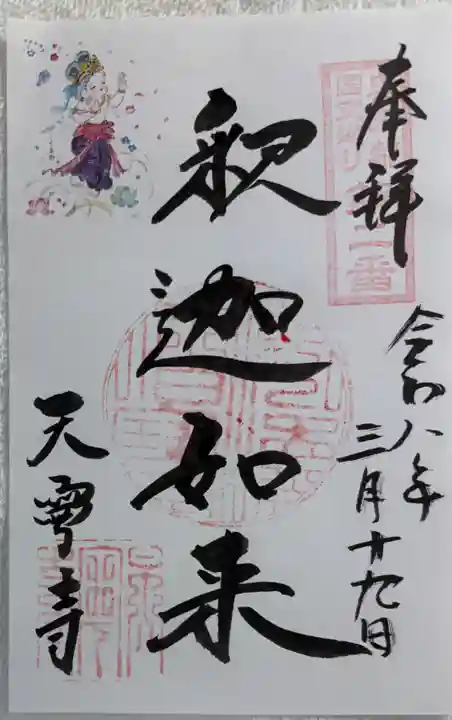 奉拝
令和八年
三月十九日
釈迦如来
天雪寺